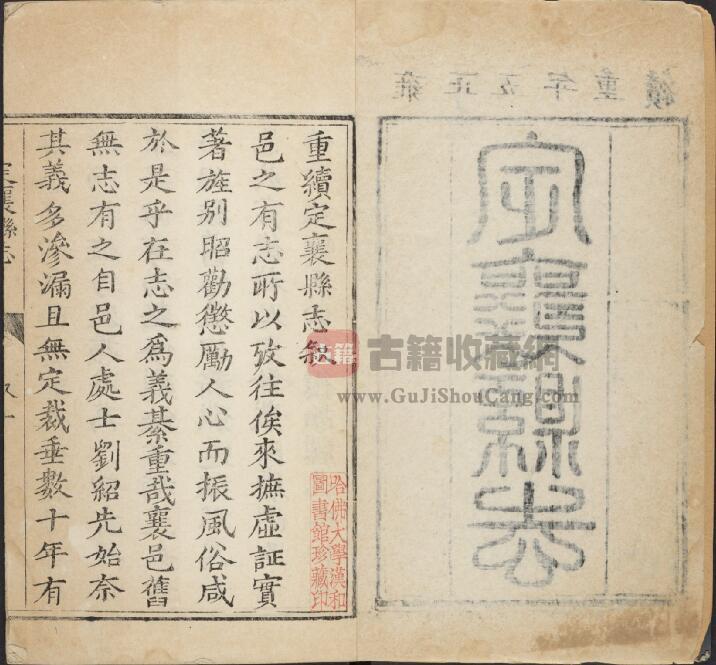 雍正五年重續
定襄縣志
重續定襄縣志敘
邑之有志所以攷往俟來摭虛証實
著旌別昭勸懲勵人心而振風俗咸
於是乎在志之爲義綦重哉襄邑舊
無志有之自邑人處士劉紹先始奈
其義多滲漏且無定裁垂數十年有
定襄縣志
哈佛大學漢和
圖書館珍藏印
古籍
古籍收藏網
www.GuJiShouCang.com